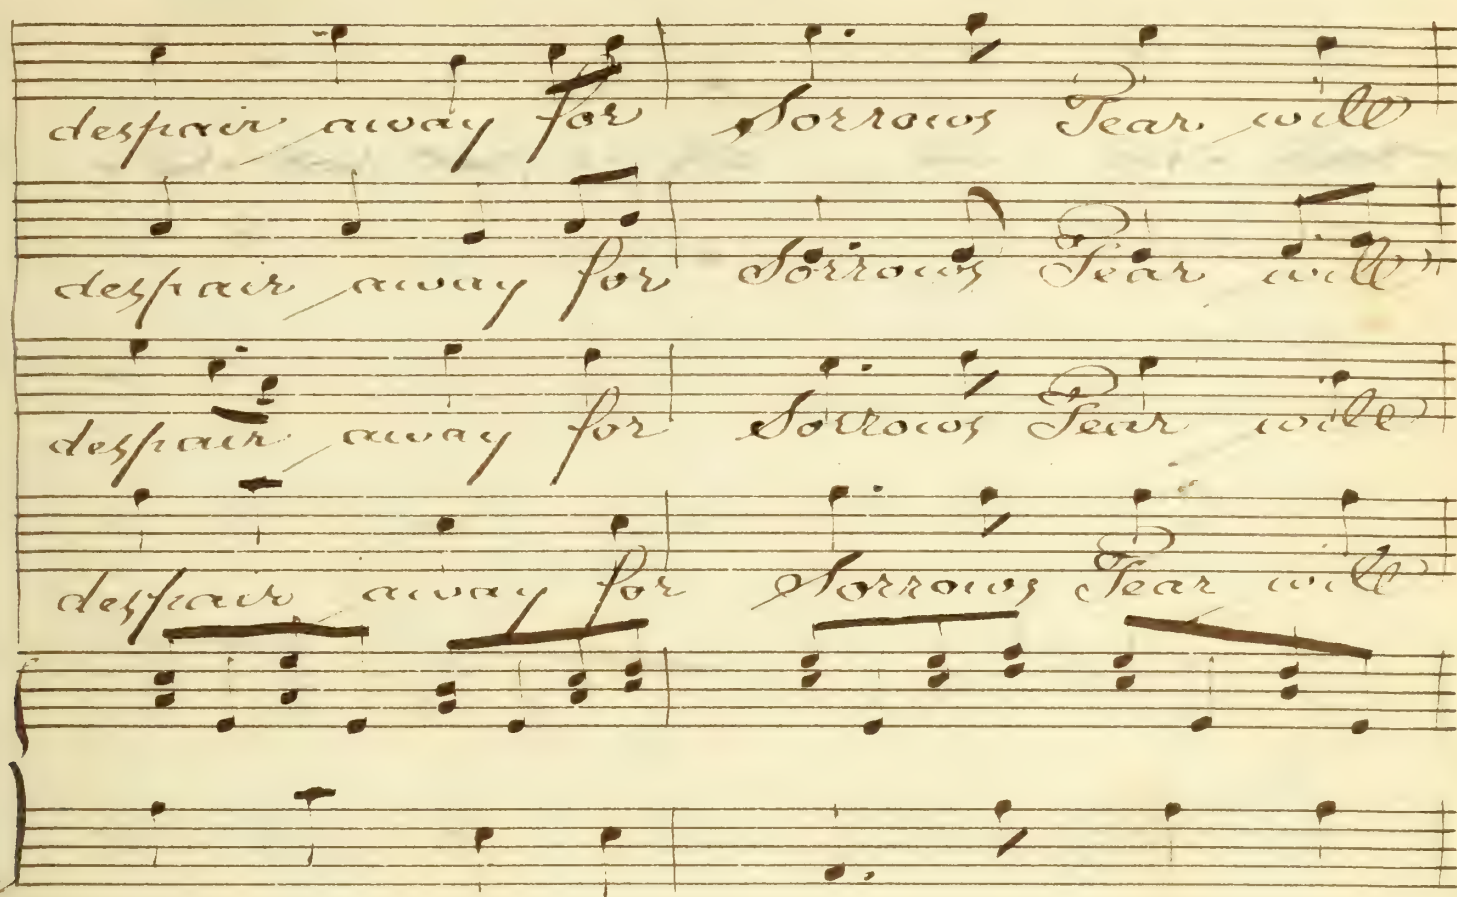 despair away for Sorrows Tear will
despair away for Sorrows Tear will
despair away for Sorrows Tear will
despair away for Sorrows Tear will